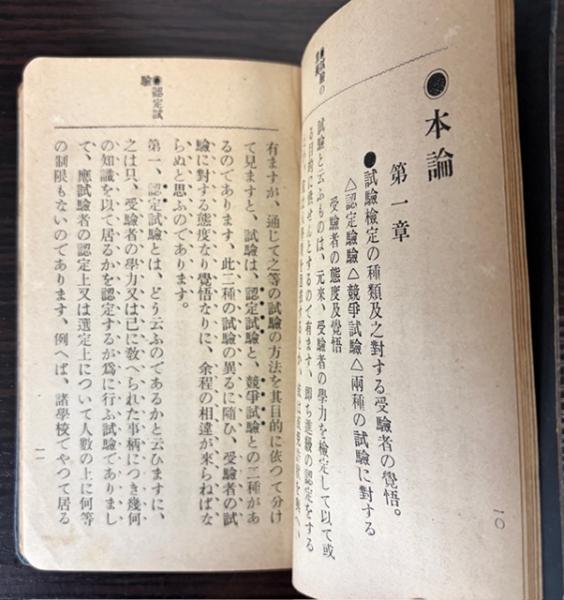 ●本論
第一章
●試驗檢定の種類及之對する受驗者の覺悟。
△認定驗驗△競爭試驗△兩種の試驗に對する
受驗者の態度及覺悟
試驗と云ふものは、元來、受驗者の學力を檢定して以て或
る目的に供せんとするので有ます、即ち進級の認定をする
一〇
●認定試
驗
有ますが、通じて之等の試驗の方法を其目的に依つて分け
て見ますと、試驗は、認定試驗と、競爭試驗との二種があ
るのであります、此二種の試驗の異るに隨ひ、受驗者の試
驗に對する態度なり覺悟なりに、余程の相違が來らねばな
らぬと思ふのであります。
第一、認定試驗とは、どう云ふのであるかと云ひますに、
之は只、受驗者の學力又は已に敎へられた事柄につき幾何
の知識を以て居るかを認定するが爲に行ふ試驗でありまし
て、應試驗者の認定上又は選定上について人數の上に何等
の制限もないのであります、例へば、諸學校でやつて居る
一一